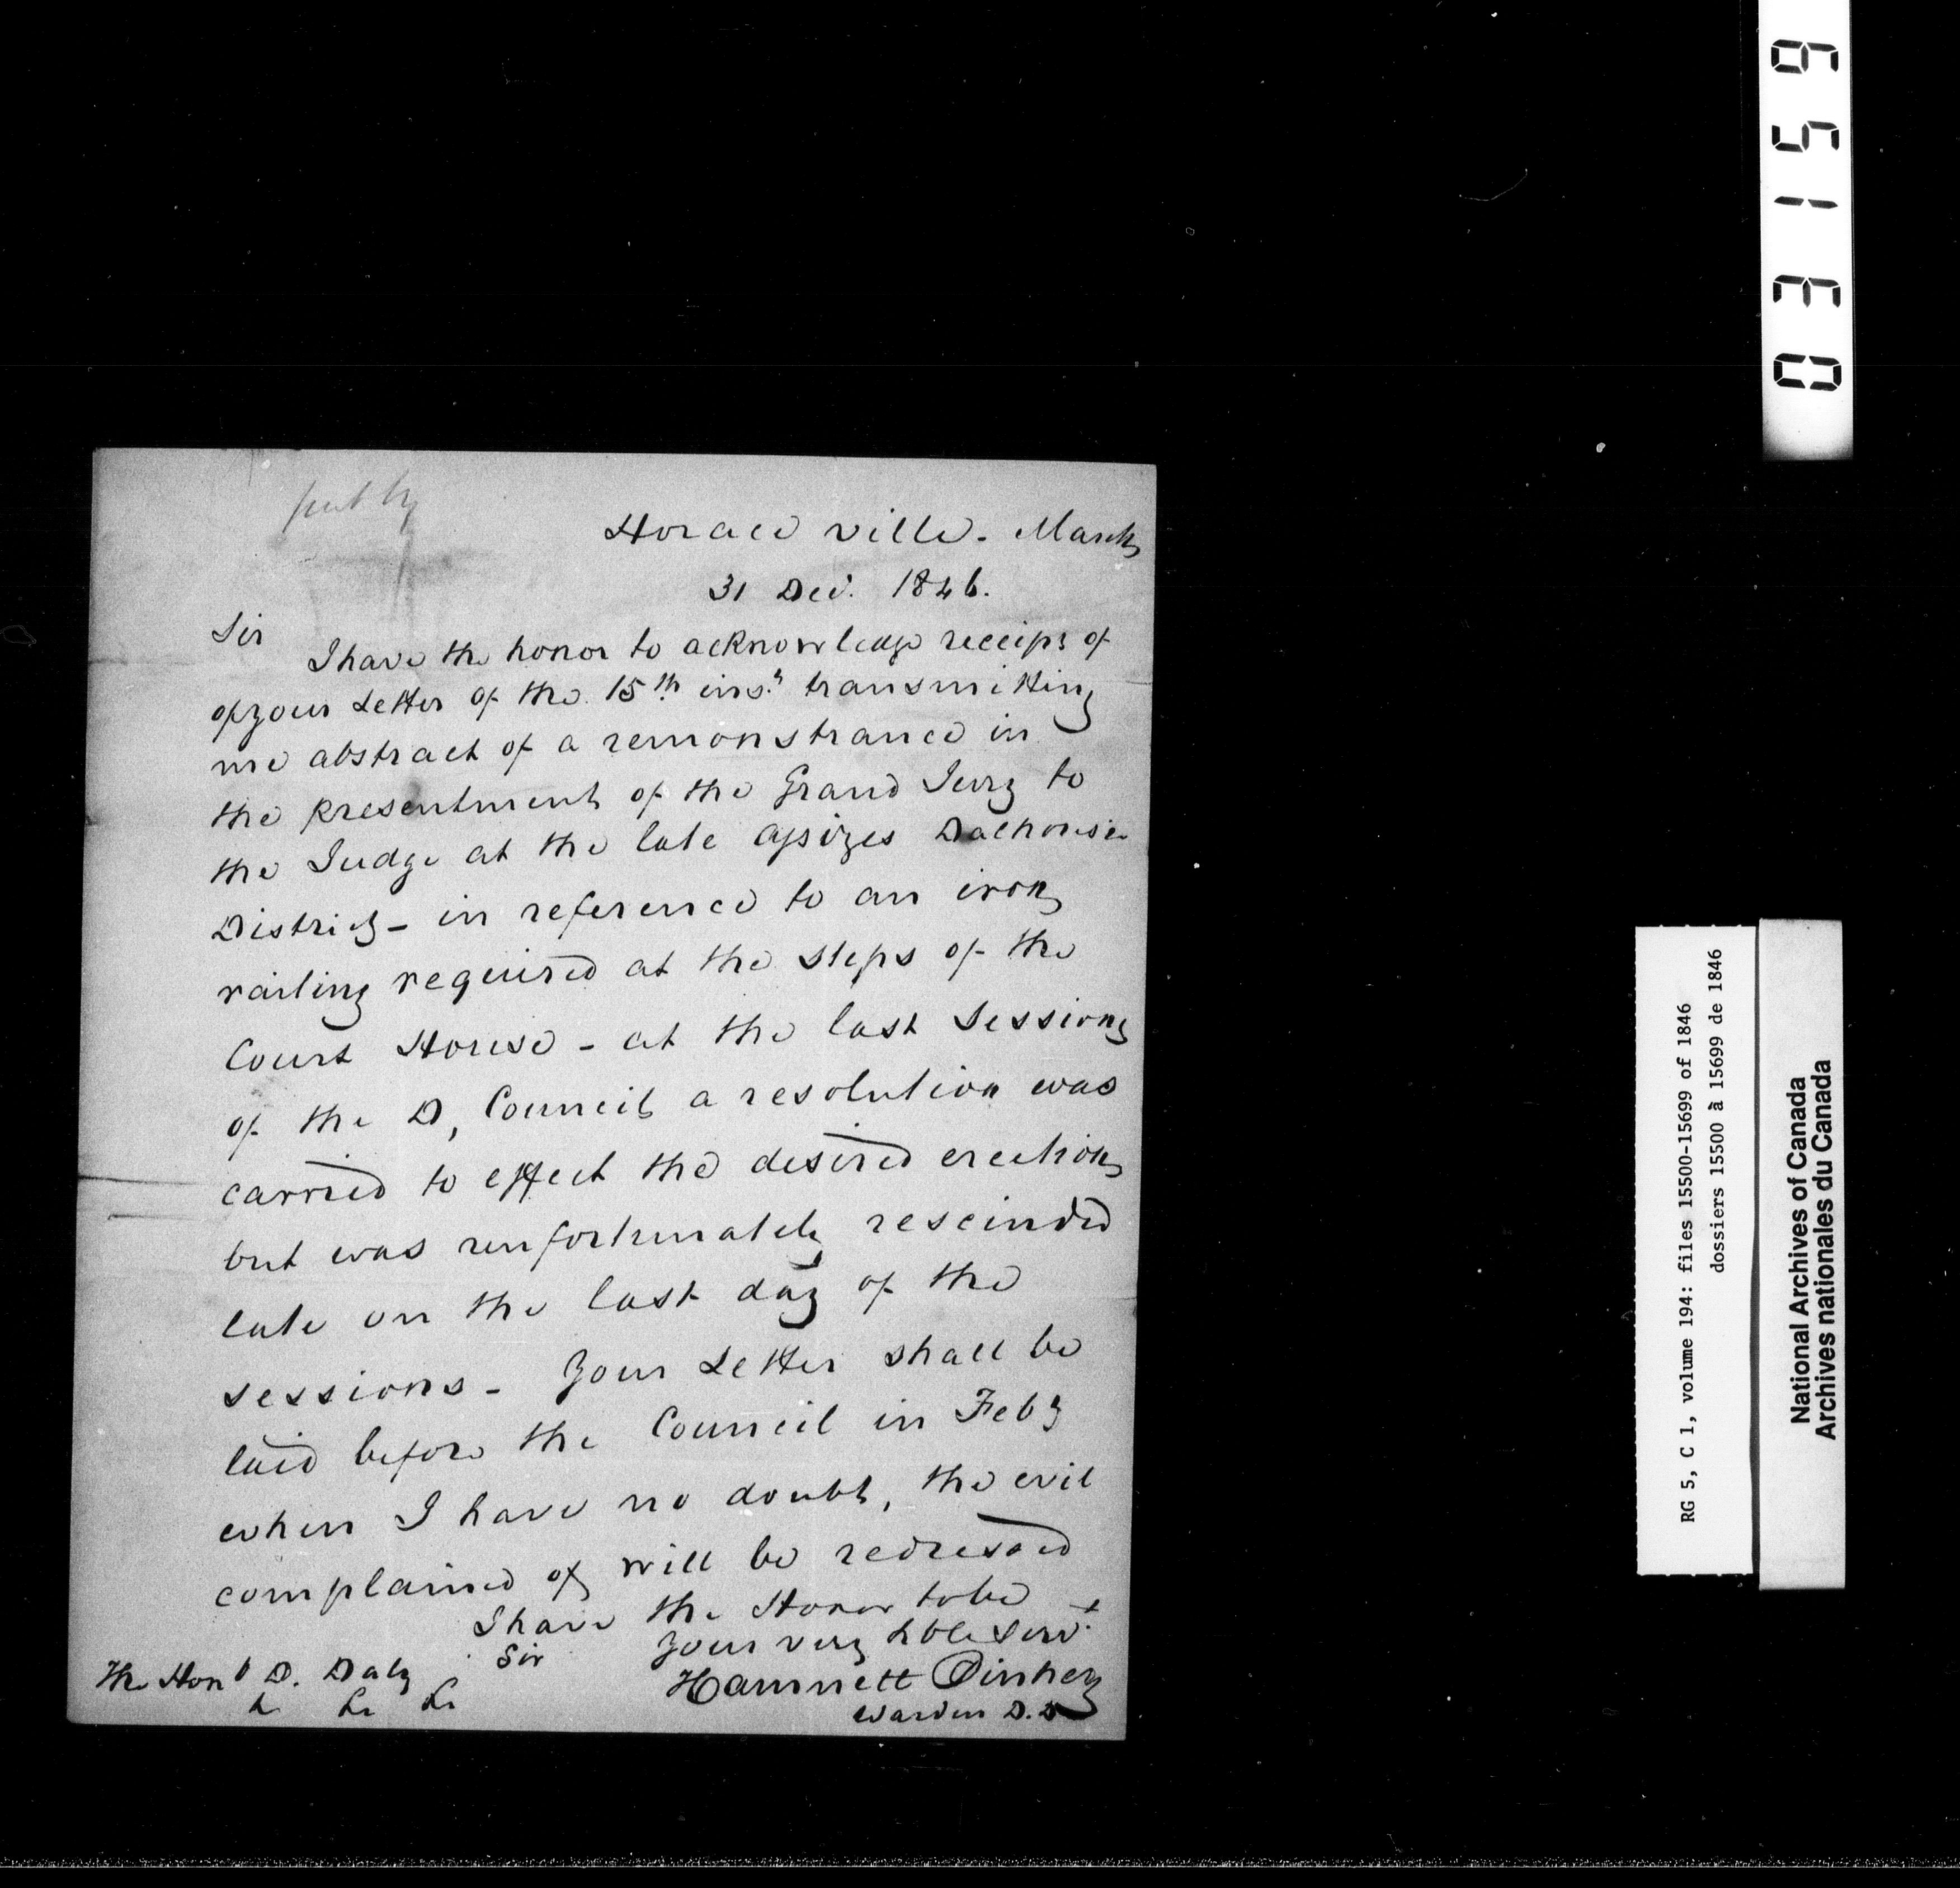 put by
Horace ville. March
31 Dec. 1846.
Sir
I have the honor to acknowledge receipt of
of your Letter of the 15th inst transmitting
me abstract of a remonstrance in
the presentment of the Grand Jury to
the Judge at the late assizes Dalhousie
District - in reference to an iron
railing required at the steps of the
Court House - at the last Sessions
of the D, Council a resolution was
carried to effect the desired erection
but was unfortunately rescinded
late on the last day of the
sessions - Your Letter shall be
laid before the Council in Feby
when I have no doubt, the evil
complained of will be redressed
I have the Honor to be
Sir your very hble Servt
The Honb D. Daly
Hamnett Pinhey
Warden D.D
03159
RG 5, C 1, volume 194: files 15500-15699 of 1846
dossiers 15500 à 15699 de 1846
National Archives of Canada
Archives nationales du Canada